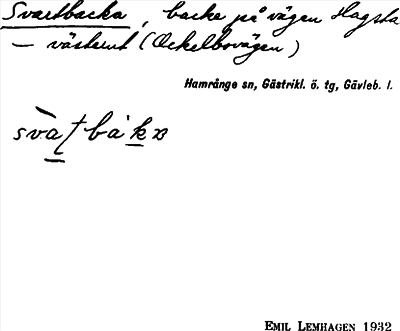 Svartbacka, backe på vägen Hagsta
– västerut (Ockelbovägen)
Hamrånge sn, Gästrikl. ö. tg, Gävleb. l.
EMIL LEMHAGEN 1932